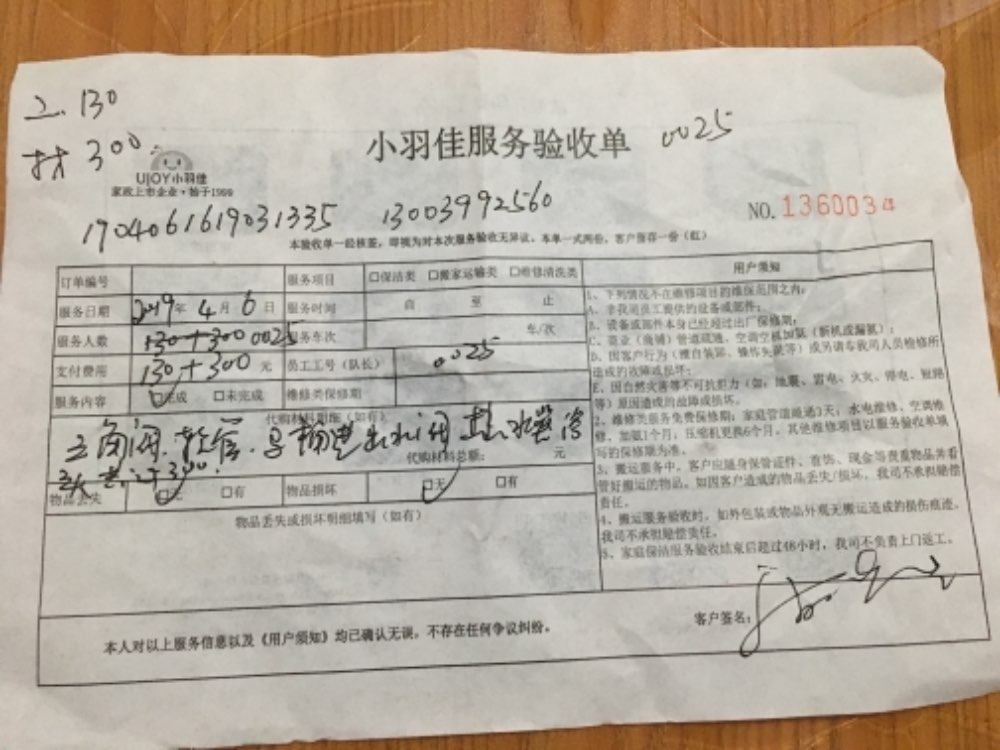 工.130
材300.
小羽佳服务验收单 0025
UJOY小羽佳
家政上市企业·始于1999
1904061619031335 13003992560
NO.1360034
本验收单一经核签，即视为对本次服务验收无异议。本单一式两份，客户留存一份（红）
订单编号 服务项目 □保洁类 □搬家运输类 □维修清洗类
服务日期 2019年4月6日 服务时间 自 至 止
服务人数 130+300 0025 服务车次 车/次
支付费用 130+300元 员工工号（队长） 0025
服务内容 □完成 □未完成 维修类保修期
代购材料明细（如有）
三角阀.软管.马桶进出水阀 热水器
代购材料总额： 元
共计300.
物品丢失 □无 □有 物品损坏 □无 □有
物品丢失或损坏明细填写（如有）
用户须知
1、下列情况不在维修项目的维保范围之内：
A、非我司员工提供的设备或部件；
B、设备或部件本身已经超过出厂保修期；
C、商业（商铺）管道疏通、空调空机加氟（新机或漏氟）；
D、因客户行为（擅自装卸、操作失误等）或另请专我司人员检修所
造成的故障或损坏；
E、因自然灾害等不可抗拒力（如：地震、雷电、火灾、停电、短路
等）原因造成的故障或损坏。
2、维修类服务免费保修期：家庭管道疏通3天；水电维修、空调维
修、加氟1个月；压缩机更换6个月。其他维修项目以服务验收单填
写的保修期为准。
3、搬运服务中，客户应随身保管证件、首饰、现金等贵重物品并看
管好搬运的物品。如因客户造成的物品丢失/损坏，我司不承担赔偿
责任。
4、搬运服务验收时，如外包装或物品外观无搬运造成的损伤痕迹，
我司不承担赔偿责任。
5、家庭保洁服务验收结束后超过48小时，我司不负责上门返工。
客户签名：
本人对以上服务信息以及《用户须知》均已确认无误，不存在任何争议纠纷。